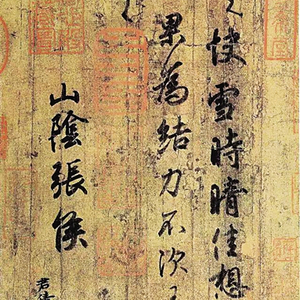 快雪時晴佳想
果為結力不次
山陰張侯
君